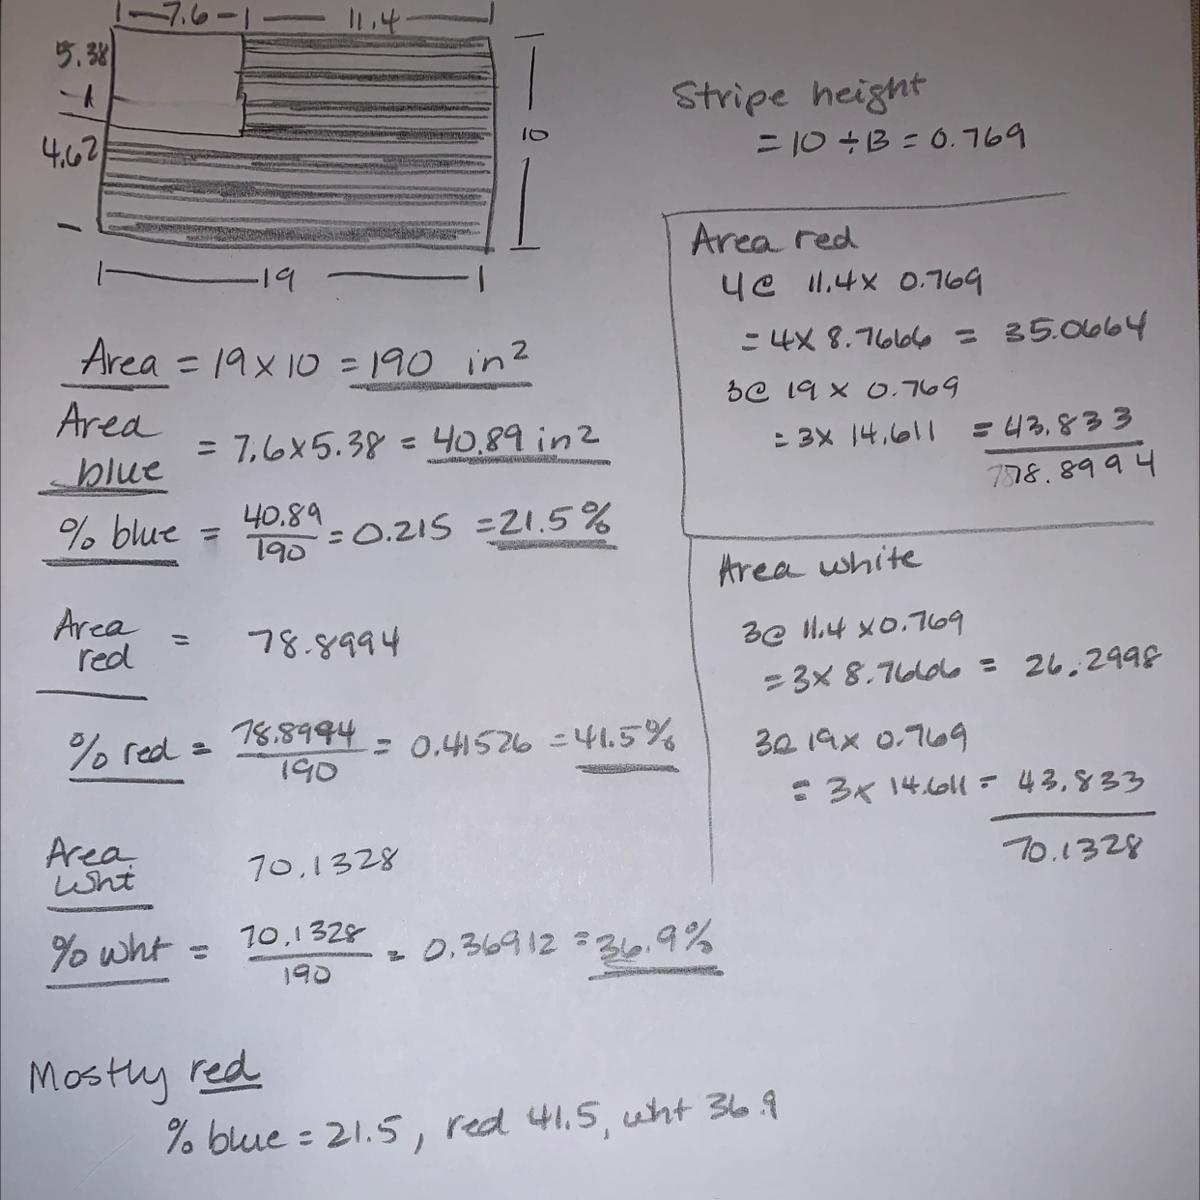 7.6 11.4
5.38
4.62
10
19
Stripe height
= 10 ÷ 13 = 0.769
Area = 19 x 10 = 190 in²
Area blue = 7.6 x 5.38 = 40.89 in²
% blue = 40.89 / 190 = 0.215 = 21.5%
Area red = 78.8994
% red = 78.8994 / 190 = 0.41526 = 41.5%
Area wht 70.1328
% wht = 70.1328 / 190 = 0.36912 = 36.9%
Area red
4@ 11.4 x 0.769
= 4 x 8.7666 = 35.0664
3@ 19 x 0.769
= 3 x 14.611 = 43.833
78.8994
Area white
3@ 11.4 x 0.769
= 3 x 8.7666 = 26.2998
3@ 19 x 0.769
= 3 x 14.611 = 43.833
70.1328
Mostly red
% blue = 21.5, red 41.5, wht 36.9